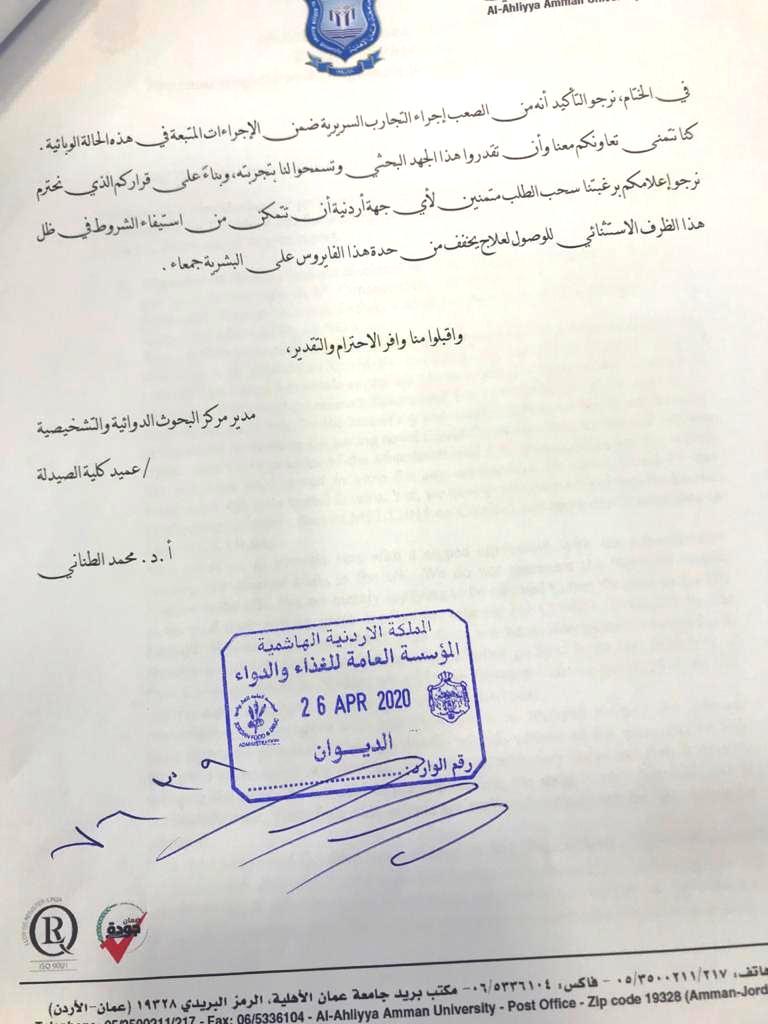 Al-Ahliyya Amman
في الختام، نرجو التأكيد أنه من الصعب إجراء التجارب السريرية ضمن الإجراءات المتبعة في هذه الحالة الوبائية .
كنا نتمنى تعاونكم معنا وأن تقدروا هذا الجهد البحثي وتسمحوا لنا بتجربته، وبناءً على قراركم الذي نحترم
نرجو إعلامكم برغبتنا سحب الطلب متمنين لأي جهة أردنية أن تتمكن من استيفاء الشروط في ظل
هذا الظرف الاستثنائي للوصول لعلاج يخفف من حدة هذا الفايروس على البشرية جمعاء .
واقبلوا منا وافر الاحترام والتقدير،
مدير مركز البحوث الدوائية والتشخيصية
/عميد كلية الصيدلة
أ . د . محمد الطناني
المملكة الاردنية الهاشمية
المؤسسة العامة للغذاء والدواء
26 APR 2020
JORDAN FOOD & DRUG
ADMINISTRATION
الديـوان
رقم الوارد:
R
ISO 9001
ضمان
جودة
هاتف: ٠٥/٣٥٠٠٢١١/٢١٧ - فاكس: ٠٦/٥٣٣٦١٠٤ - مكتب بريد جامعة عمان الأهلية، الرمز البريدي ١٩٣٢٨ (عمان-الأردن)
Telephone: 05/3500211/217 - Fax: 06/5336104 - Al-Ahliyya Amman University - Post Office - Zip code 19328 (Amman-Jord